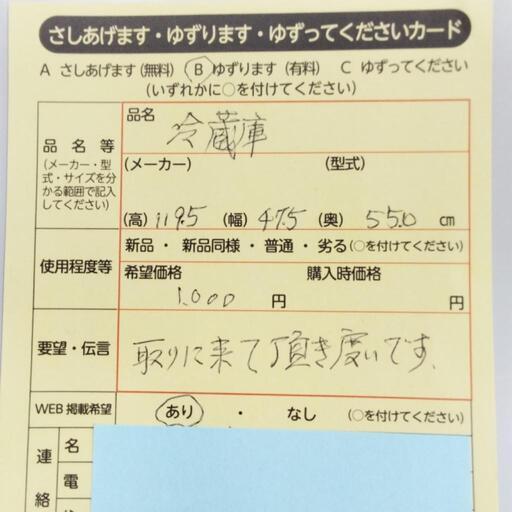 さしあげます・ゆずります・ゆずってくださいカード
A さしあげます(無料) B ゆずります(有料) C ゆずってください
(いずれかに○を付けてください)
品名等
(メーカー・型式・サイズを分かる範囲で記入してください)
品名
冷蔵庫
(メーカー) (型式)
(高) 119.5 (幅) 47.5 (奥) 55.0 cm
使用程度等
新品・新品同様・普通・劣る(○を付けてください)
希望価格 購入時価格
1,000 円 円
要望・伝言
取りに来て頂き度いです。
WEB掲載希望
あり ・ なし (○を付けてください)
連絡
名
電